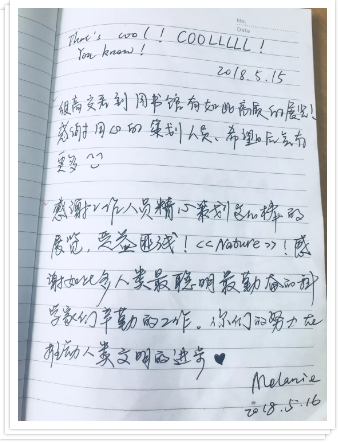 No.
Date
That's cool! COOLLLLL!
You know!
2018.5.15
很高兴看到图书馆有如此高质的展览!
感谢用心的策划人员、希望以后会有
更多
感谢工作人员精心策划这样的
展览,受益匪浅!《Nature》!感
谢如此多人类最聪明最勤奋的科
学家们辛勤的工作。你们的努力在
推动人类文明的进步♥
Melanie
2018.5.16